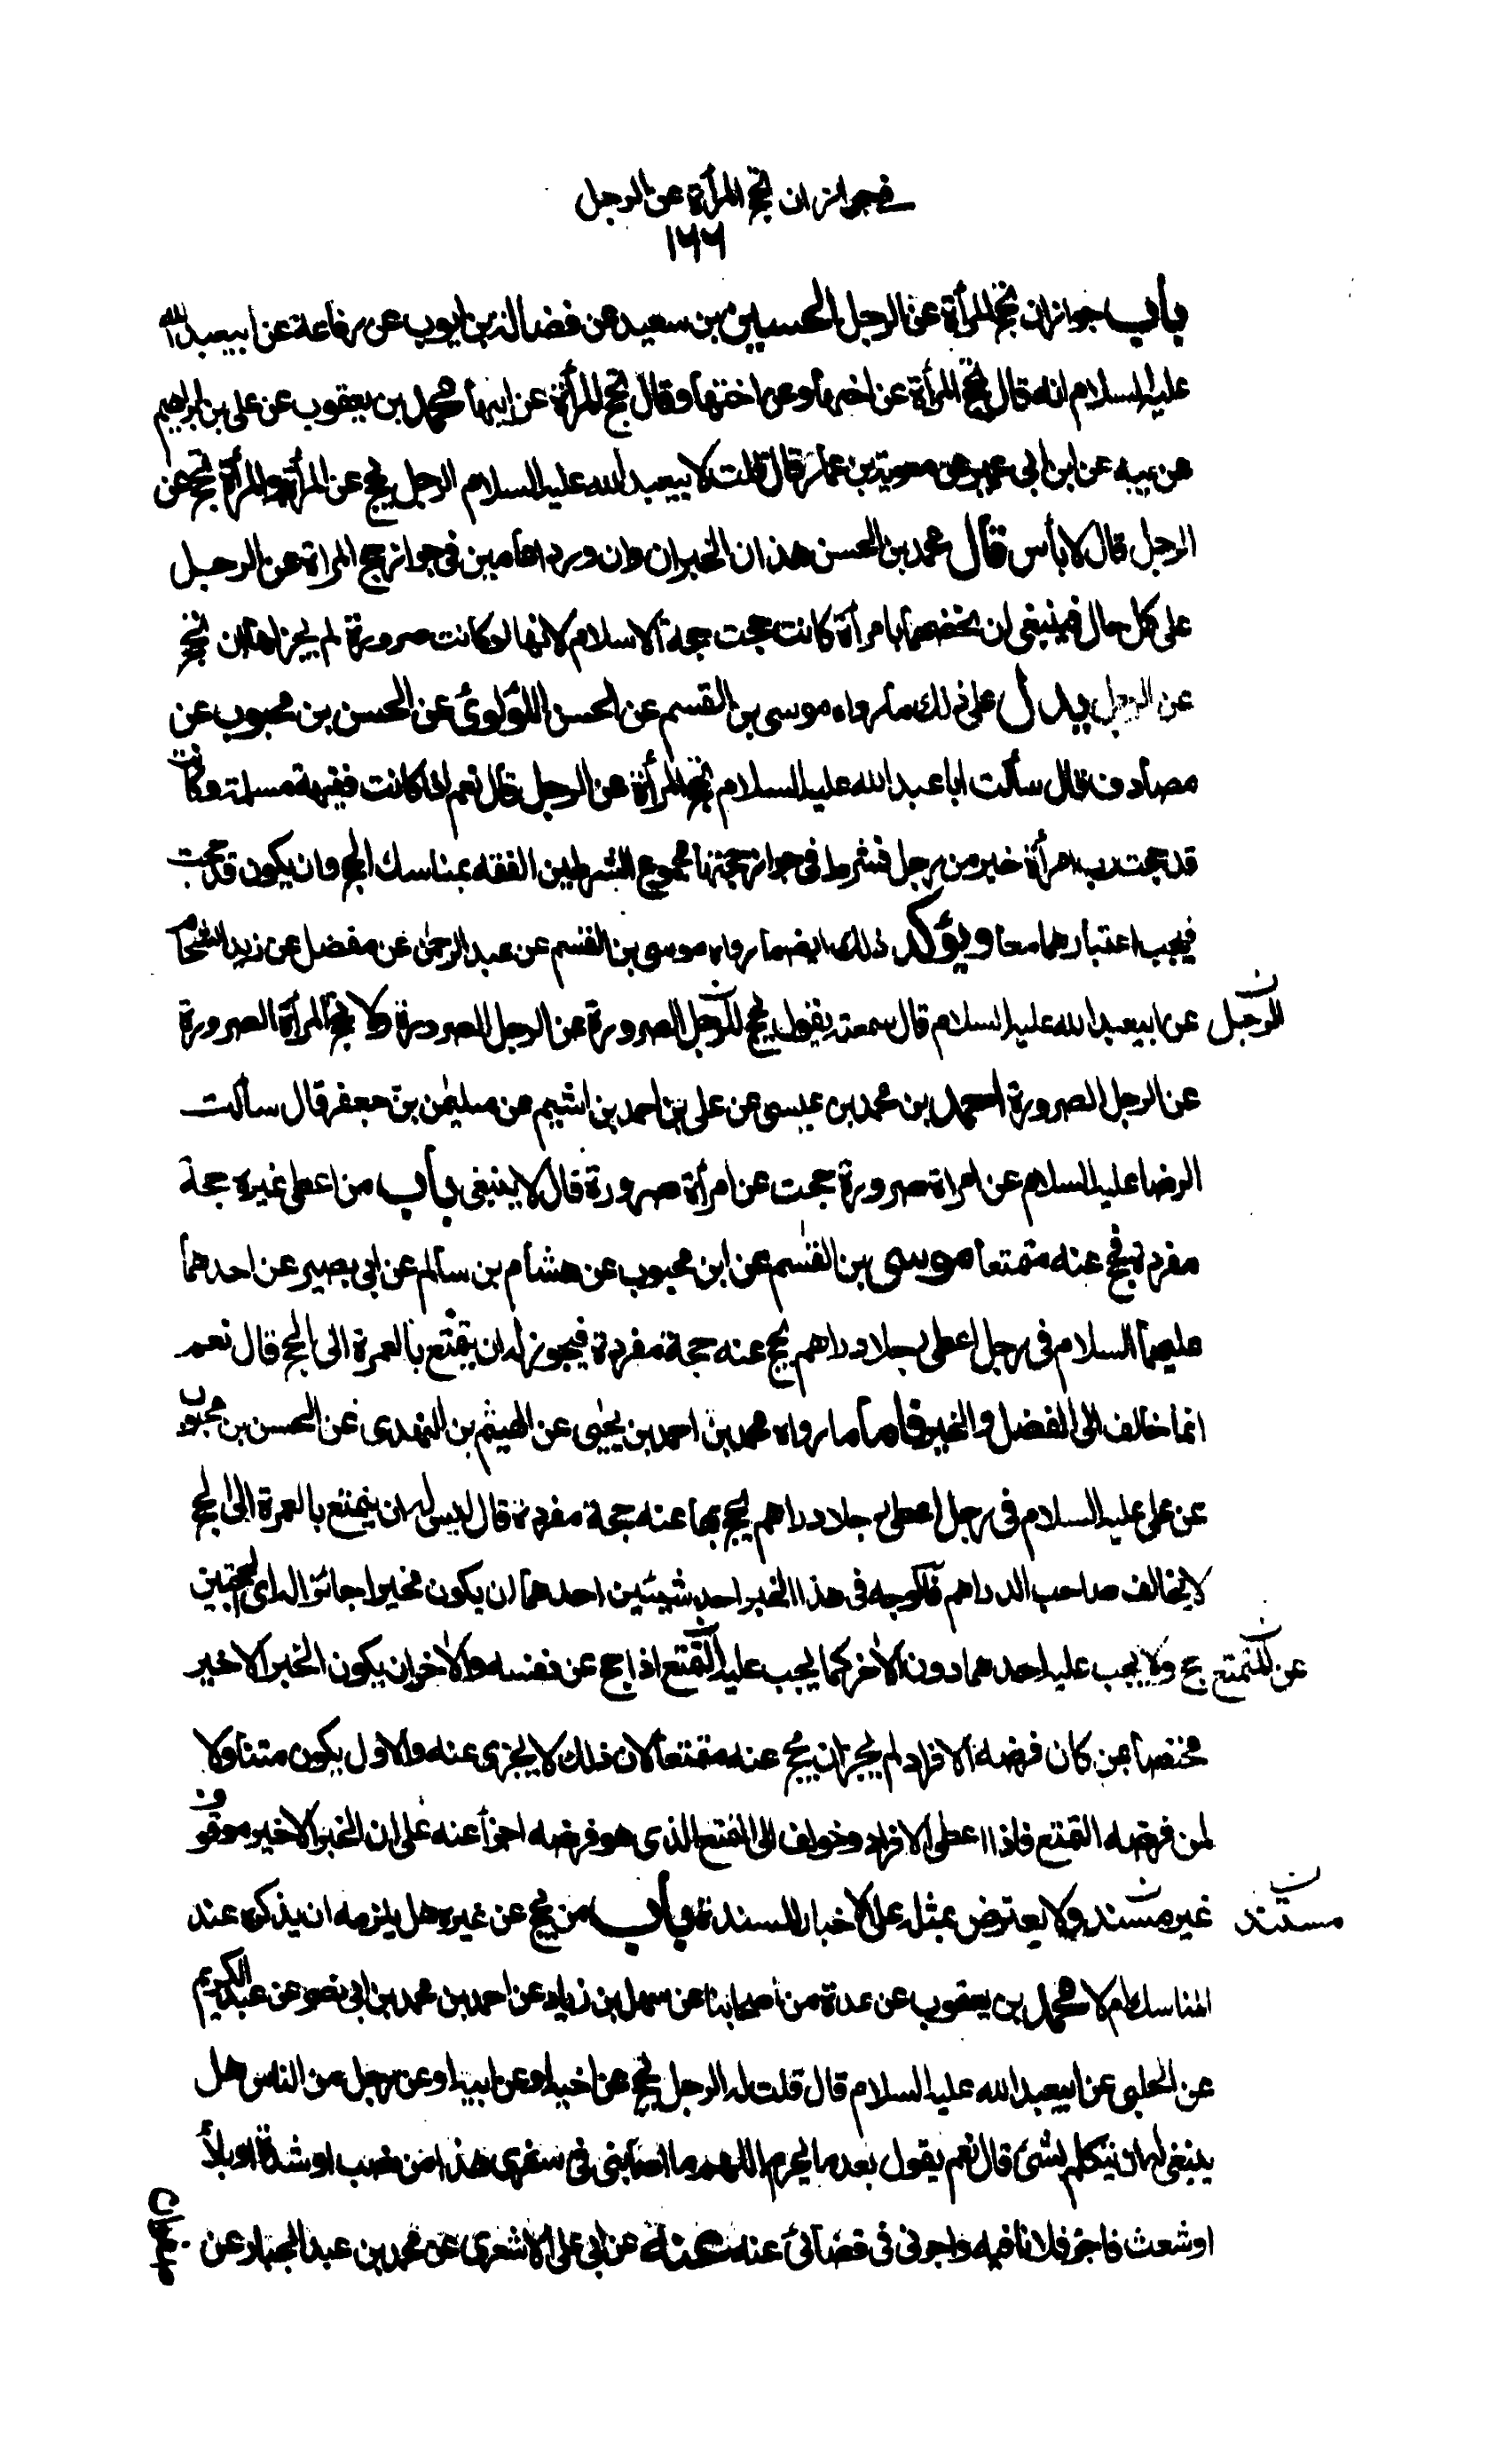 في جوازان تحج المرأة عن الرجل
١٦٦
باب جوازان تحج المرأة عن الرجل الحسين بن سعيد عن فضالة بن ايوب عن رفاعة عن ابيعبد الله
عليه السلام انه قال تحج المرأة عن اخيها وعن اختها وقال تحج المرأة عن ابيها محمد بن يعقوب عن علي بن ابراهيم
عن ابيه عن ابن ابي عمير عن معوية بن عمار قال قلت لابيعبد الله عليه السلام الرجل يحج عن المرأة والمرأة تحج عن
الرجل قال لا بأس قال محمد بن الحسن هذان الخبران وان وردا عامين في جواز حج المراة عن الرجل
على كل حال فينبغي ان نخصهما بامرأة كانت حجت حجة الاسلام لانها لو كانت صرورة لم يجز لها ان تحج
عن الرجل يدل على ذلك ما رواه موسى بن القسم عن الحسن اللؤلوئ عن الحسن بن محبوب عن
مصادف قال سألت ابا عبد الله عليه السلام تحج المرأة عن الرجل قال نعم اذا كانت فقيهة مسلمة وكانت
قد حجت رب امرأة خير من رجل فشرط في جواز حجتها مجموع الشرطين الفقه بمناسك الحج وان يكون قد حجت
فيجب اعتبارهما معا ويؤكد ذلك ايضا ما رواه موسى بن القسم عن عبد الرحمن عن مفضل عن زيد الشحام
عن ابيعبد الله عليه السلام قال سمعته يقول يحج الرجل الصرورة عن الرجل الصرورة ولا تحج المرأة الصرورة
الرجل ن
عن الرجل الصرورة احمد بن محمد بن عيسى عن علي بن احمد بن اشيم عن سليمن بن جعفر قال سألت
الرضا عليه السلام عن امراة صرورة حجت عن امرأة صرورة قال لا ينبغي باب من اعطى غيره حجة
مفردة فحج عنه متمتعا موسى بن القسم عن ابن محبوب عن هشام بن سالم عن ابي بصير عن احدهما
عليهما السلام في رجل اعطى رجلا دراهم يحج عنه حجة مفردة فيجوز له ان يتمتع بالعمرة الى الحج قال نعم
انما خالف الى الفضل والخير فاما ما رواه محمد بن احمد بن يحيى عن الهيثم بن النهدي عن الحسن بن محبوب
عن علي عليه السلام في رجل اعطى رجلا دراهم يحج بها عنه حجة مفردة قال ليس له ان يتمتع بالعمرة الى الحج
لا يخالف صاحب الدراهم فالوجه في هذا الخبر احد شيئين احدهما ان يكون مخيرا جائزا له اي الحجتين
حج ولا يجب عليه احدهما دون الاخر كما يجب عليه التمتع اذا حج عن نفسه والاخر ان يكون الخبر الاخير
عن التمتع ن
مختصا بمن كان فرضه الافراد لم يجز ان يحج عنه متمتعا لان ذلك لا يجزي عنه والاول يكون متناولا
لمن فرضه التمتع فاذا اعطى الافراد وخولف الى التمتع الذي هو فرضه اجزأ عنه على ان الخبر الاخير موقوف
غير مسند ولا يعترض بمثله على الاخبار المسندة باب من يحج عن غيره هل يلزمه ان يذكره عند
مستند ن
المناسك ام لا محمد بن يعقوب عن عدة من اصحابنا عن سهل بن زياد عن احمد بن محمد بن ابي نصر عن عبد الكريم
عن الحلبي عن ابيعبد الله عليه السلام قال قلت له الرجل يحج عن اخيه او عن ابيه او عن رجل من الناس هل
ينبغي له ان يتكلم بشئ قال نعم يقول بعد ما يحرم اللهم ما اصابني في سفري هذا من نصب او شدة او بلأ
او شعث فاجر فلانا فيه واجرني في قضائي عنه عنه عن ابي علي الاشعري عن محمد بن عبد الجبار عن